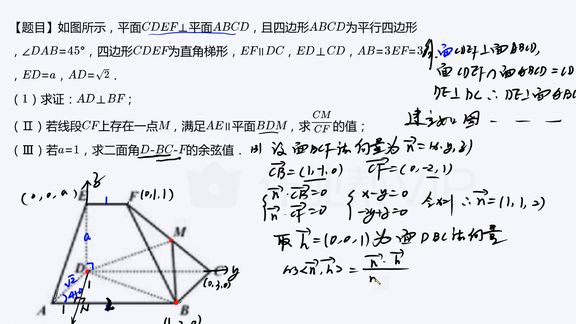 【题目】如图所示，平面CDEF⊥平面ABCD，且四边形ABCD为平行四边形
，∠DAB=45°，四边形CDEF为直角梯形，EF∥DC，ED⊥CD，AB=3EF=3
，ED=a，AD=√2．
（1）求证：AD⊥BF；
（Ⅱ）若线段CF上存在一点M，满足AE∥平面BDM，求CM/CF的值；
（Ⅲ）若a=1，求二面角D-BC-F的余弦值．
面CDEF⊥面ABCD,
面CDEF∩面ABCD=CD
DE⊥DC ∴DE⊥面ABC
建立如图
设面BCF法向量为n=(x,y,z)
CB=(1,-1,0) CF=(0,-2,1)
n·CB=0 x-y=0
n·CF=0 -2y+z=0 令x=1 ∴n=(1,1,2)
取h=(0,0,1)为面DBC法向量
cos<n,h>=n·h
n
(0,0,a) z
E 1 F(0,1,1)
a M
D 1 C y
√2 (0,3,0)
A 1 N 2 B